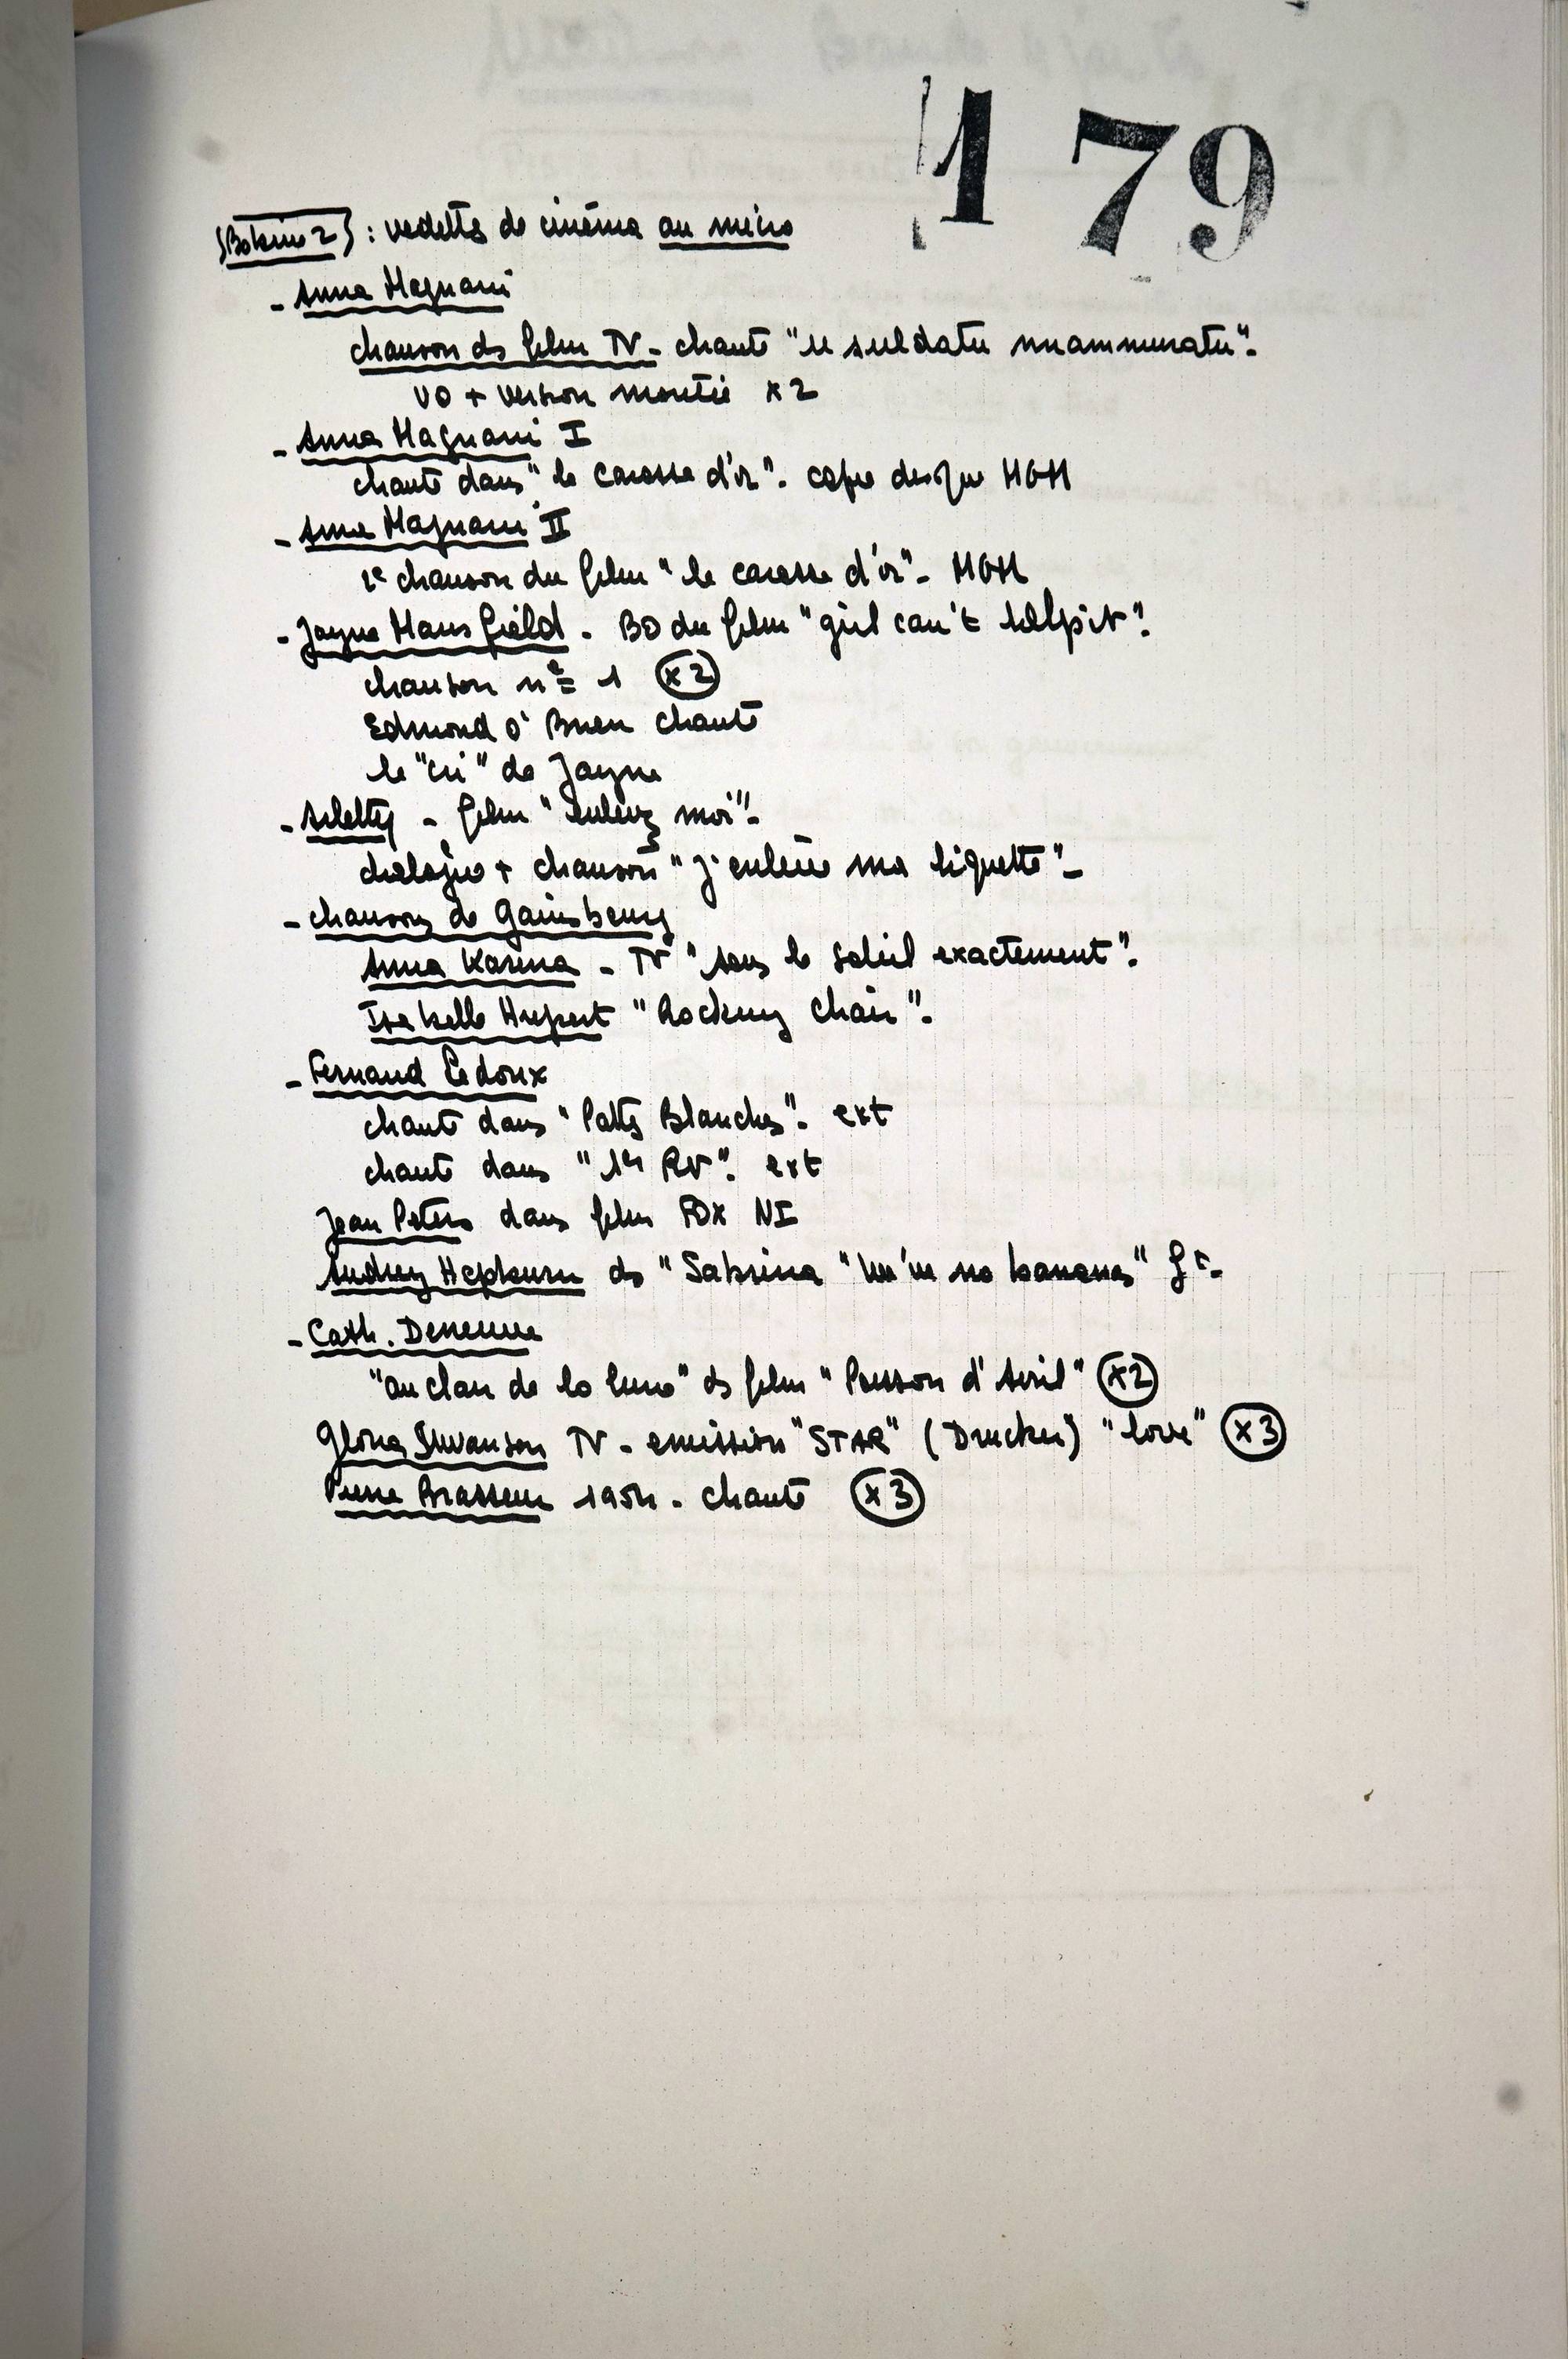 179
Bobine 2 : vedettes de cinéma au micro
- Anna Magnani
chanson ds film TV - chante "u suldatu nnammuratu".
VO + version montée x 2
- Anna Magnani I
chante dans "le carosse d'or". copie disque MGM
- Anna Magnani II
2e chanson du film "le carosse d'or" - MGM
- Jayne Mansfield - BO du film "girl can't help it".
chanson n° 1 x 2
Edmond O'Brien chante
le "cri" de Jayne
- Arletty - film "enlevez moi" -
dialogue + chanson "j'enlève ma liquette" -
- chansons de Gainsbourg
Anna Karina - TV "sous le soleil exactement".
Isabelle Hupert "Rocking Chair".
- Fernand Ledoux
chante dans "Pattes Blanches". ext
chante dans "1er RV". ext
Jean Peters dans film FOX NI
Audrey Hepburn ds "Sabrina" no bananas"
- Cath. Deneuve
"au clair de la lune" ds film "Poisson d'Avril" x2
Gloria Swanson TV - emission "STAR" (Drucker) "love" x3
Pierre Brasseur 1954 - chante x3